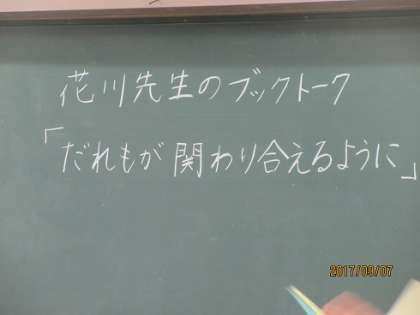 花川先生のブックトーク
「だれもが関わり合えるように」
2017/09/07